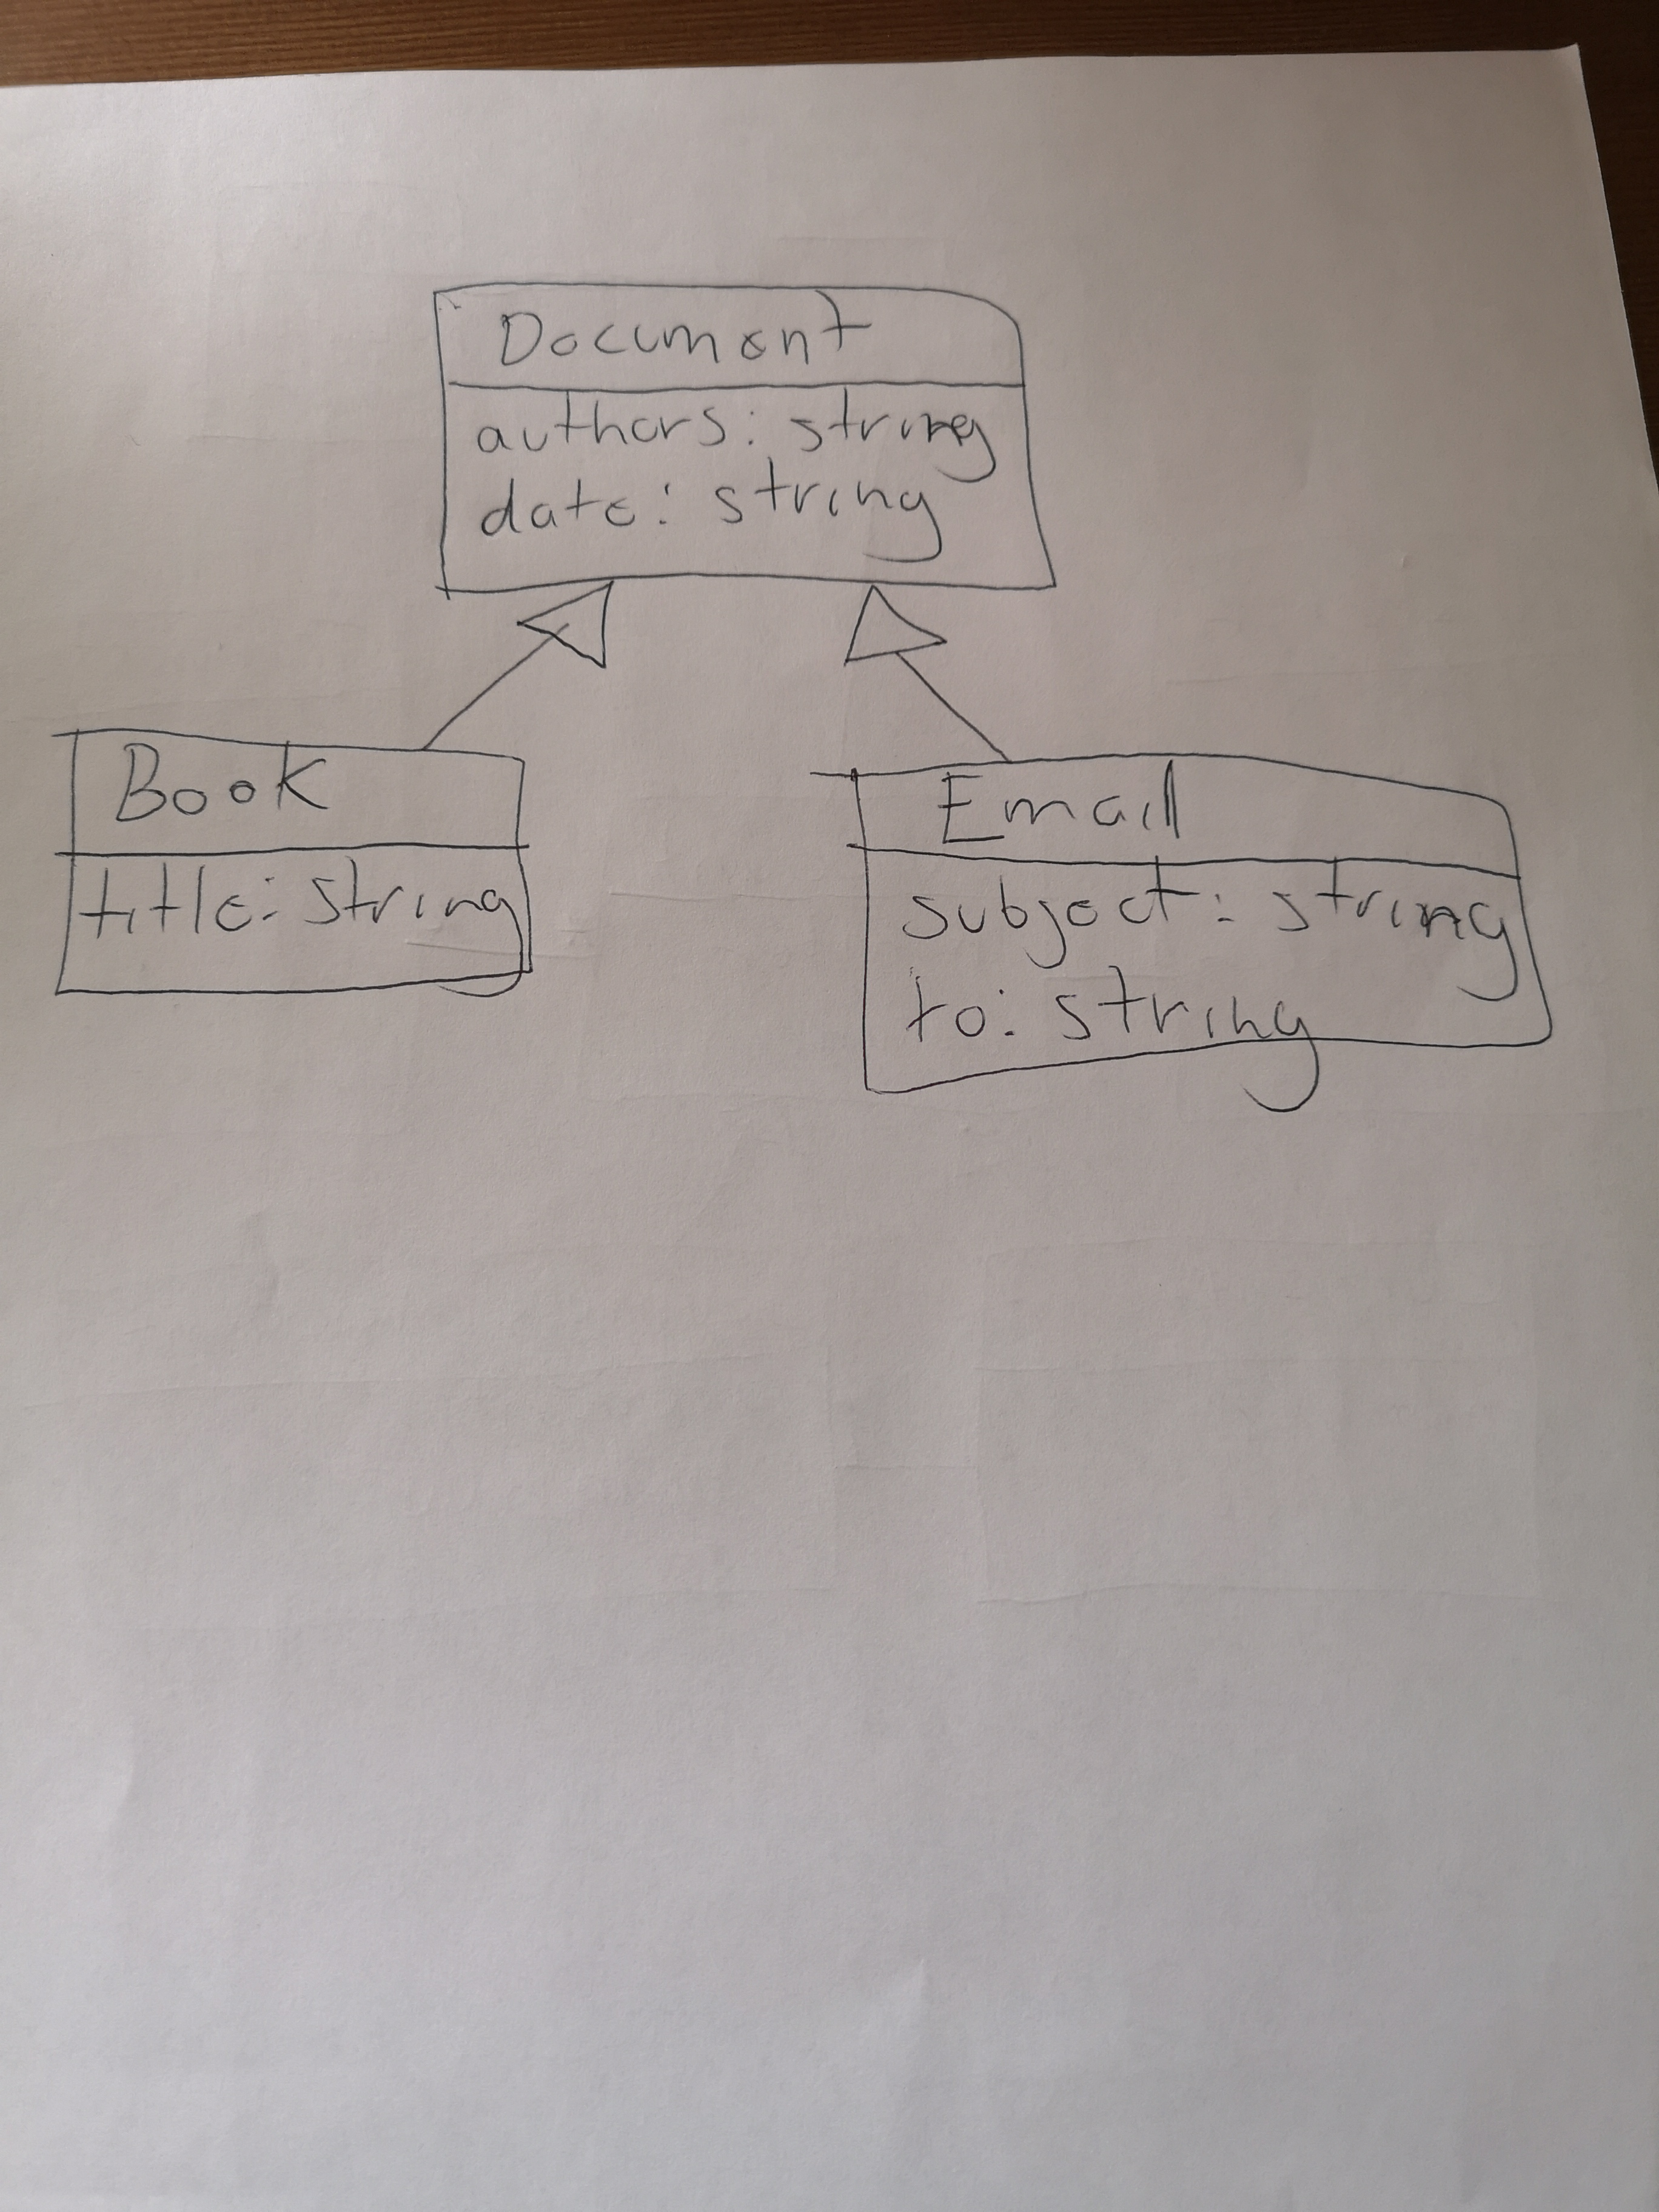 Document
authors: string
date: string
Book
title: string
Email
subject: string
to: string